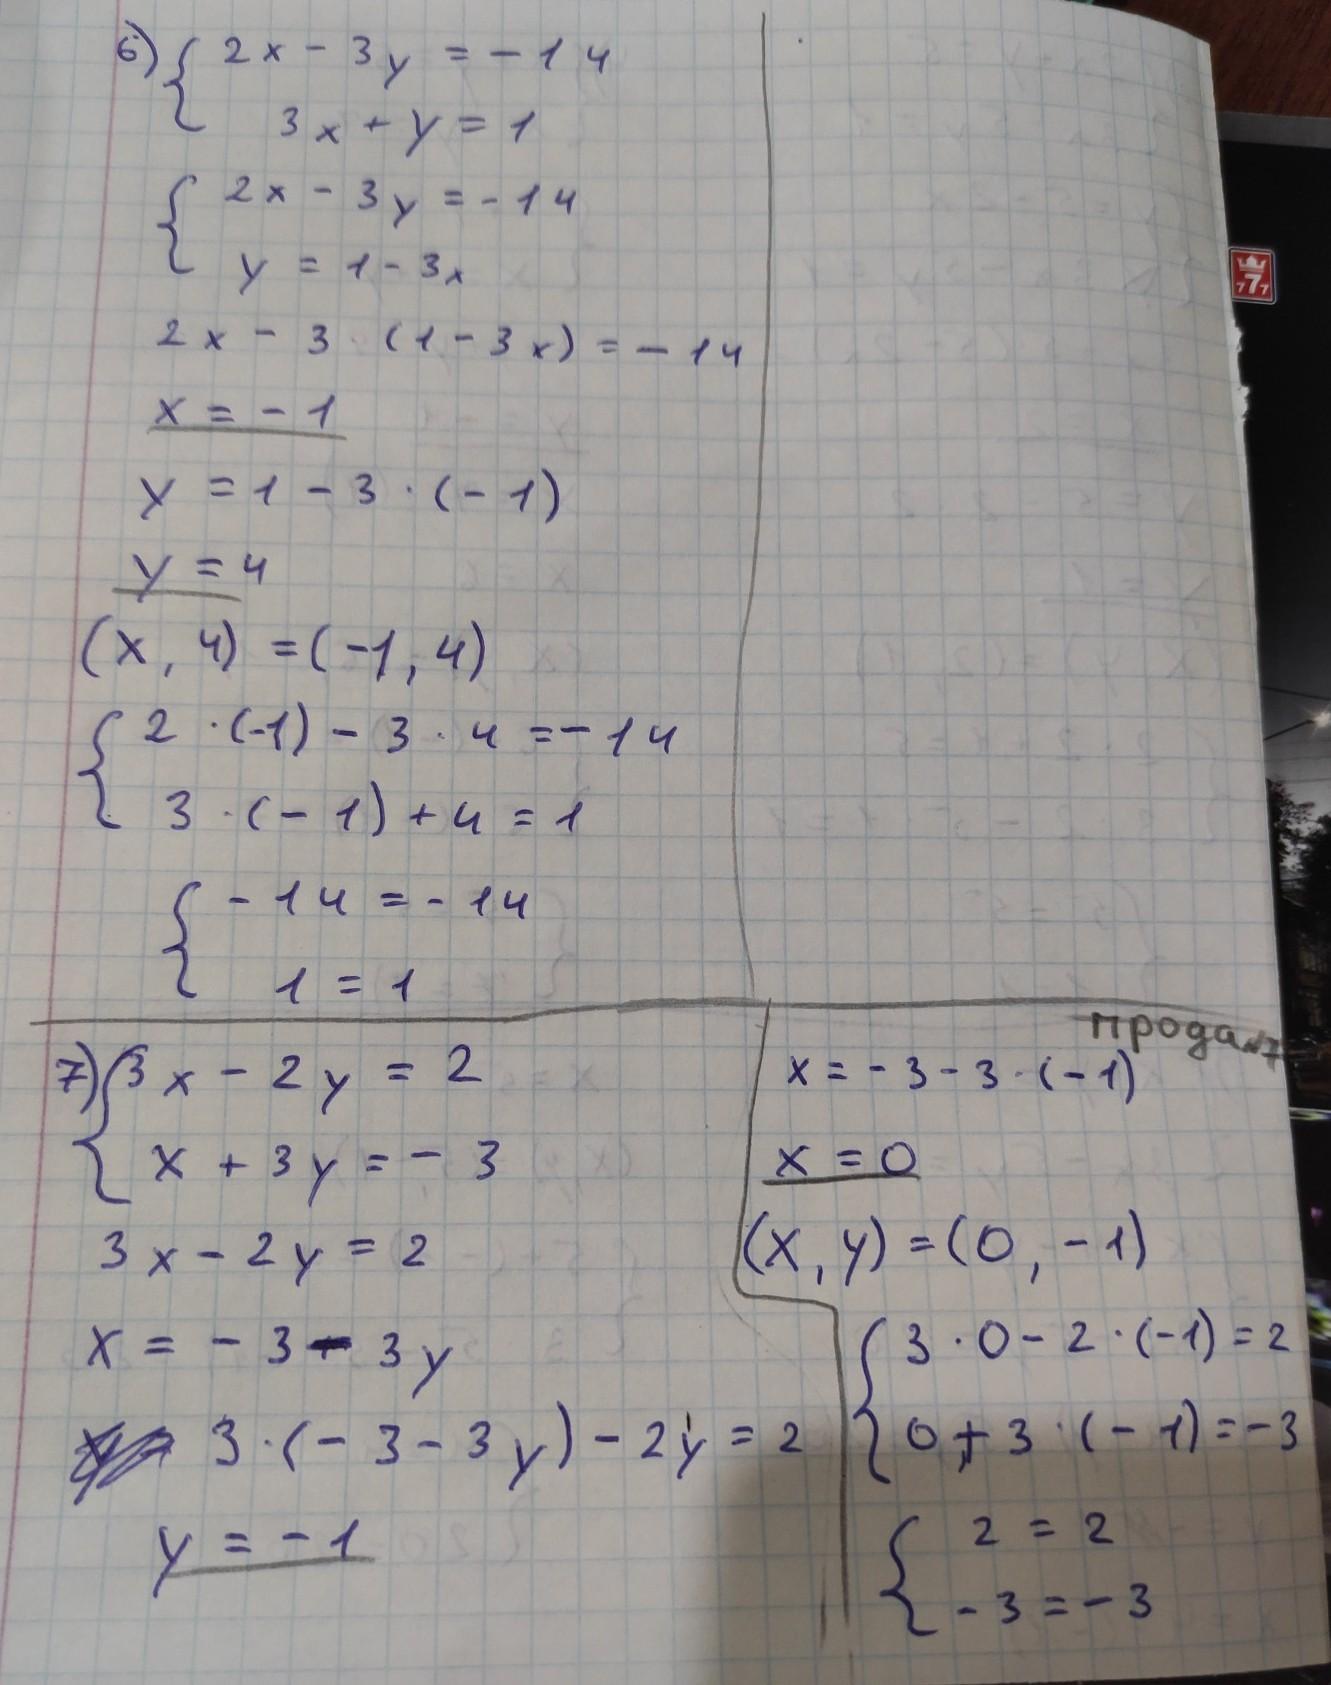 6) { 2x - 3y = -14
3x + y = 1
{ 2x - 3y = -14
y = 1 - 3x
2x - 3 · (1 - 3x) = -14
x = -1
y = 1 - 3 · (-1)
y = 4
(x, 4) = (-1, 4)
{ 2 · (-1) - 3 · 4 = -14
3 · (-1) + 4 = 1
{ -14 = -14
1 = 1
7) { 3x - 2y = 2
x + 3y = -3
3x - 2y = 2
x = -3 - 3y
3 · (-3 - 3y) - 2y = 2
y = -1
прода №7
x = -3 - 3 · (-1)
x = 0
(x, y) = (0, -1)
{ 3 · 0 - 2 · (-1) = 2
0 + 3 · (-1) = -3
{ 2 = 2
-3 = -3
777